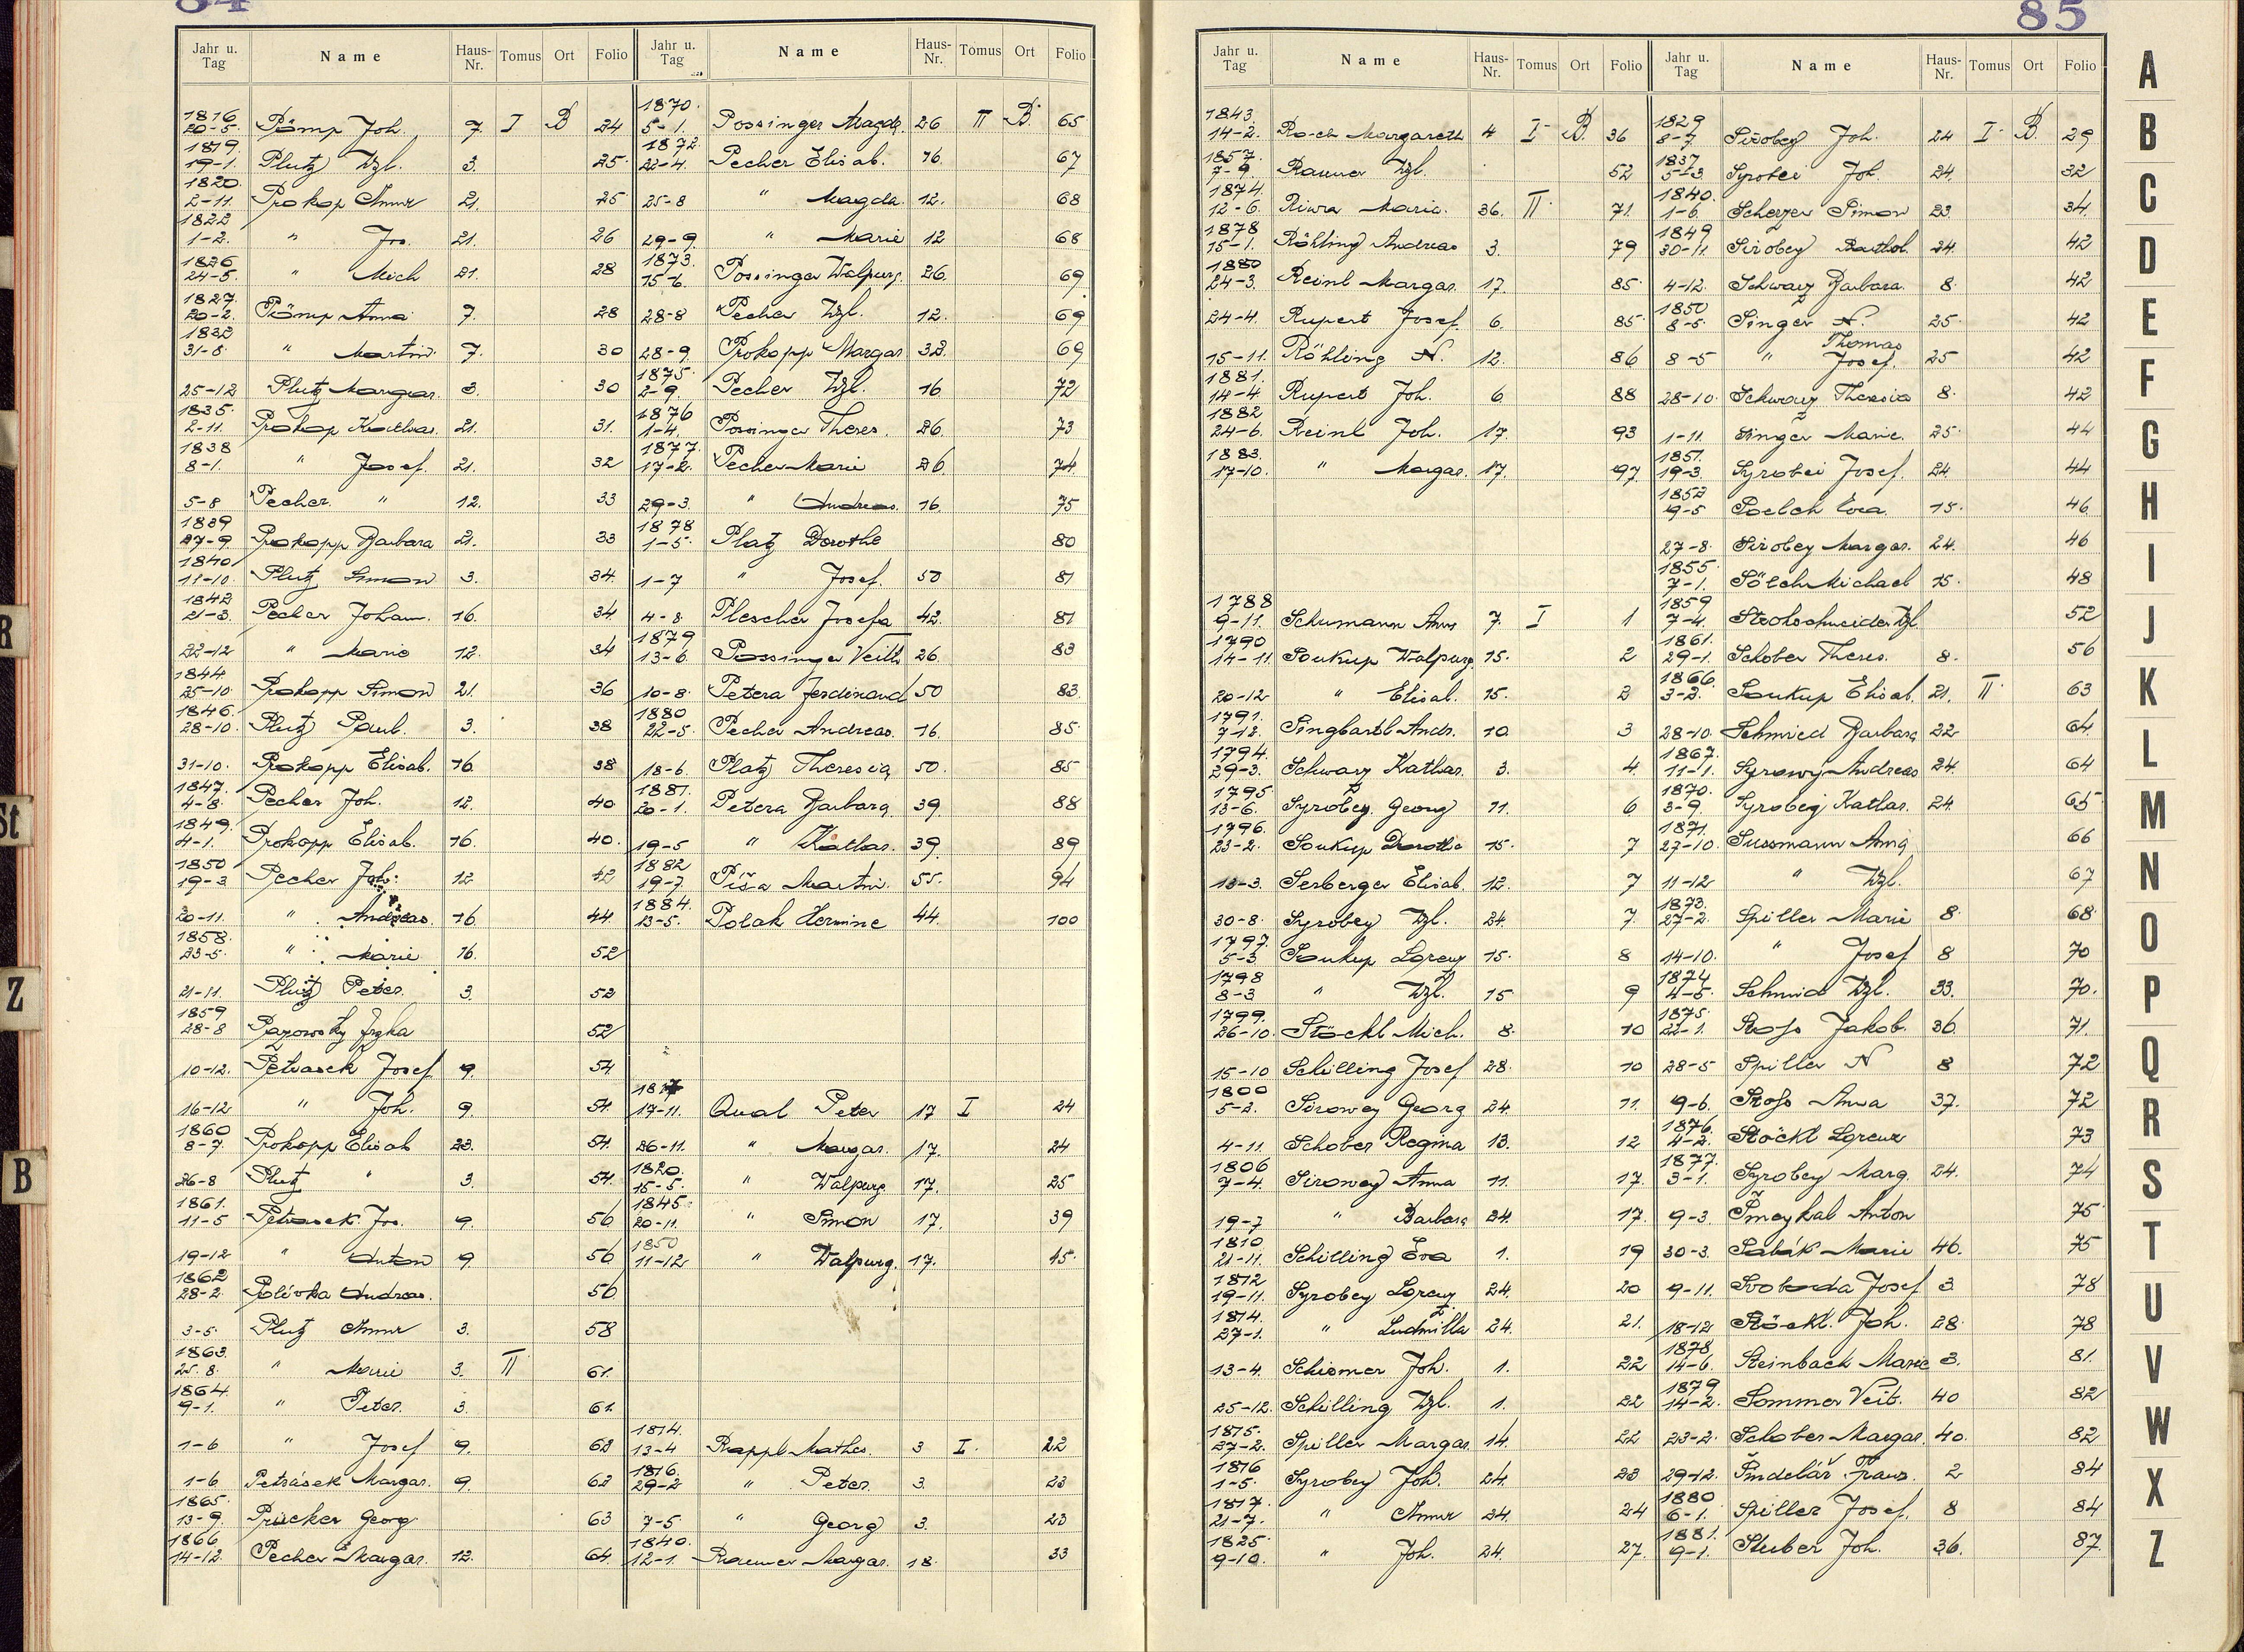 84
Jahr u. Tag Name Haus-Nr. Tomus Ort Folio
1816
20-5. Pömp Joh. 7. I B 24
1819
19-1. Plutz Wzl. 3. 25.
1820.
2-11. Prokop Anna 21. 25
1822
1-2. " Jos. 21. 26
1826
24-5. " Mich 21. 28
1827.
20-2. Pömp Anna 7. 28
1832
31-8. " Martin 7. 30
25-12 Plutz Margar. 3. 30
1835.
2-11. Prokop Kathar. 21. 31.
1838
8-1. " Josef. 21. 32
5-8 Pecher " 12. 33
1839
27-9. Prokopp Barbara 21. 33
1840
11-10. Plutz Simon 3. 34.
1842
21-3. Pecher Johann. 16. 34
22-12 " Marie 12. 34
1844
25-10. Prokopp Simon 21. 36
1846.
28-10. Plutz Paul. 3. 38
31-10. Prokopp Elisab. 16. 38
1847.
4-8. Pecher Joh. 12. 40
1849.
4-1. Prokopp Elisab. 16. 40.
1850
19-3 Pecher Joh. 12 42
20-11. " Andreas. 16 44.
1858.
23-5. " Marie 16. 52
21-11. Plutz Peter. 3. 52
1859
28-8 52
10-12. Petrasek Josef 9. 54.
16-12 " Joh. 9. 54.
1860
8-7. Prokopp Elisab 23. 54.
26-8 Plutz " 3. 54.
1861.
11-5 Petrasek Jos. 9. 56
19-12 " Anton 9 56
1862
28-2. Polívka Andreas. 56.
3-5. Plutz Anna 3. 58
1863.
25.8. " Marie 3. II 61.
1864.
9-1. " Peter. 3. 61.
1-6 " Josef 9. 62
1-6. Petrásek Margar. 9. 62
1865.
13-9. Prücker Georg 63
1866
14-12. Pecher Margar. 12. 64.
Jahr u. Tag Name Haus-Nr. Tomus Ort Folio
1870.
5-1. Possinger Magda. 26 II B. 65
1872.
22-4. Pecher Elisab. 16. 67
25-8 " Magda. 12. 68
29-9. " Marie 12 68
1873.
15-6. Possinger Walpurg. 26. 69
28-8 Pecher Wzl. 12. 69
28-9. Prokopp Margar 32. 69
1875.
2-9. Pecher Wzl. 16 72
1876
1-4. Possinger Theres. 26. 73
1877.
17-2. Pecher Marie 26. 74
29-3. " Andreas. 16. 75
1878
1-5. Platz Dorothe 80
1-7 " Josef. 50 81
4-8. Plescher Josefa 42. 81
1879
13-6. Possinger Veith 26. 83
10-8. Petera Ferdinand 50 83.
1880
22-5. Pecher Andreas. 16. 85.
18-6. Platz Theresia 50. 85
1881.
20-1. Petera Barbara 39. 88
19-5 " Kathar. 39. 89
1882
19-7. Píša Martin. 55. 94
1884.
13-5. Polak Hermine 44. 100
17-11. Qual Peter 17 I 24
26-11. " Margar. 17. 24
1820.
15-5. " Walpurg. 17. 25
1845.
20-11. " Simon 17. 39
1850
11-12 " Walpurg. 17. 45.
1814.
13-4 Rappl Mathes. 3 I. 22
1816.
29-2 " Peter. 3. 23
7-5 " Georg 3. 23
1840.
12-1. Raumer Margar. 18. 33
85
Jahr u. Tag Name Haus-Nr. Tomus Ort Folio
1843.
14-2. Margareth 4 I. B. 36
1857.
7-9. Rauner Wzl. 52
1874.
12-6. Riwa Maria. 36. II. 71.
1878
15-1. Röhling Andreas 3. 79
1880
24-3. Reinl Margar. 17. 85.
24-4. Rupert Josef. 6. 85.
15-11. Röhling N. 12. 86
1881.
14-4. Rupert Joh. 6 88
1882
24-6. Reinl Joh. 17. 93
1883.
17-10. " Margar. 17. 97.
1788
9-11. Schumann Anna 7. I 1
1790
14-11. Soukup Walpurg. 15. 2
20-12 " Elisab. 15. 2
1791.
7-12. Singbartl Andr. 10. 3
1794.
29-3. Schwarz Kathar. 3. 4.
1795
13-6. Syrobey Georg 11. 6
1796.
23-2. Soukup Dorothe 15. 7
13-3. Serberger Elisab. 12. 7
30-8. Syrobey Wzl. 24. 7.
1797.
5-3 Soukup Lorenz 15. 8
1798
8-3 " Wzl. 15 9
1799.
26-10. Stöckl Mich. 8. 10
15-10 Schilling Josef 28. 10
1800
5-2. Sirowey Georg 24. 11.
4-11. Schober Regina 13. 12
1806
7-4. Sirowey Anna 11. 17.
19-7 " Barbara 24. 17.
1810
21-11. Schilling Eva 1. 19
1812
19-11. Syrobey Lorenz 24. 20
1814.
27-1. " Ludmilla 24. 21.
13-4. Schiemer Joh. 1. 22
25-12. Schilling Wzl. 1. 22
1815.
27-2. Spiller Margar. 14. 22
1816
1-5. Syrobey Joh. 24. 23
1817.
21-7. " Anna 24. 24
1825.
9-10. " Joh. 24. 27.
Jahr u. Tag Name Haus-Nr. Tomus Ort Folio
1829
8-7. Sirobey Joh. 24 I. B. 29
1837.
5-3 Syrobei Joh. 24. 32
1840.
1-6. Scherzer Simon 23. 34.
1849
30-11. Sirobey Barthol. 24. 42
4-12. Schwarz Barbara. 8. 42
1850
8-5. Singer N. 25. 42
Thomas
8-5 " Josef. 25 42
28-10. Schwarz Theresia 8. 42
1-11. Singer Marie. 25. 44
1851.
19-3. Syrobei Josef. 24. 44
1852
9-5 Soelch Eva. 15. 46
27-8. Sirobey Margar. 24. 46
1855
7-1. Sölch Michael 15. 48
1859
7-4. Strohschneider Wzl. 52
1861.
29-1. Schober Theres. 8. 56
1866.
3-2. Soukup Elisab. 21. II. 63
28-10. Schmied Barbara 22 64
1867.
11-1. Syrowy Andreas 24. 64
1870.
3-9. Syrobey Kathar. 24. 65
1871.
27-10. Sussmann Anna 66
11-12 " Wzl. 67
1873.
27-2. Spiller Marie 8. 68.
14-10. " Josef 8 70
1874
4-5. Schmid Wzl. 33. 70.
1875.
22-1. Stoss Jakob. 36. 71.
28-5 Spiller N 8 72
9-6. Stoss Anna 37. 72
1876.
4-2. Stöckl Lorenz 73
1877.
3-1. Syrobey Marg. 24. 74
9-3. Šmeykal Anton 75
30-3. Sabák Marie 46. 75
9-11. Svoboda Josef 3. 78
18-12 Stöckl. Joh. 28. 78
1878
14-6. Steinbach Marie 3. 81.
1879
14-2. Sommer Veit. 40 82
23-2. Schober Margar. 40. 82
29-12. Šindelář Franz. 2 84
1880
6-1. Spiller Josef. 8 84
1881.
9-1. Stuber Joh. 36. 87.
A
B
C
D
E
F
G
H
I
J
K
L
M
N
O
P
Q
R
S
T
U
V
W
X
Z
R
St
Z
B